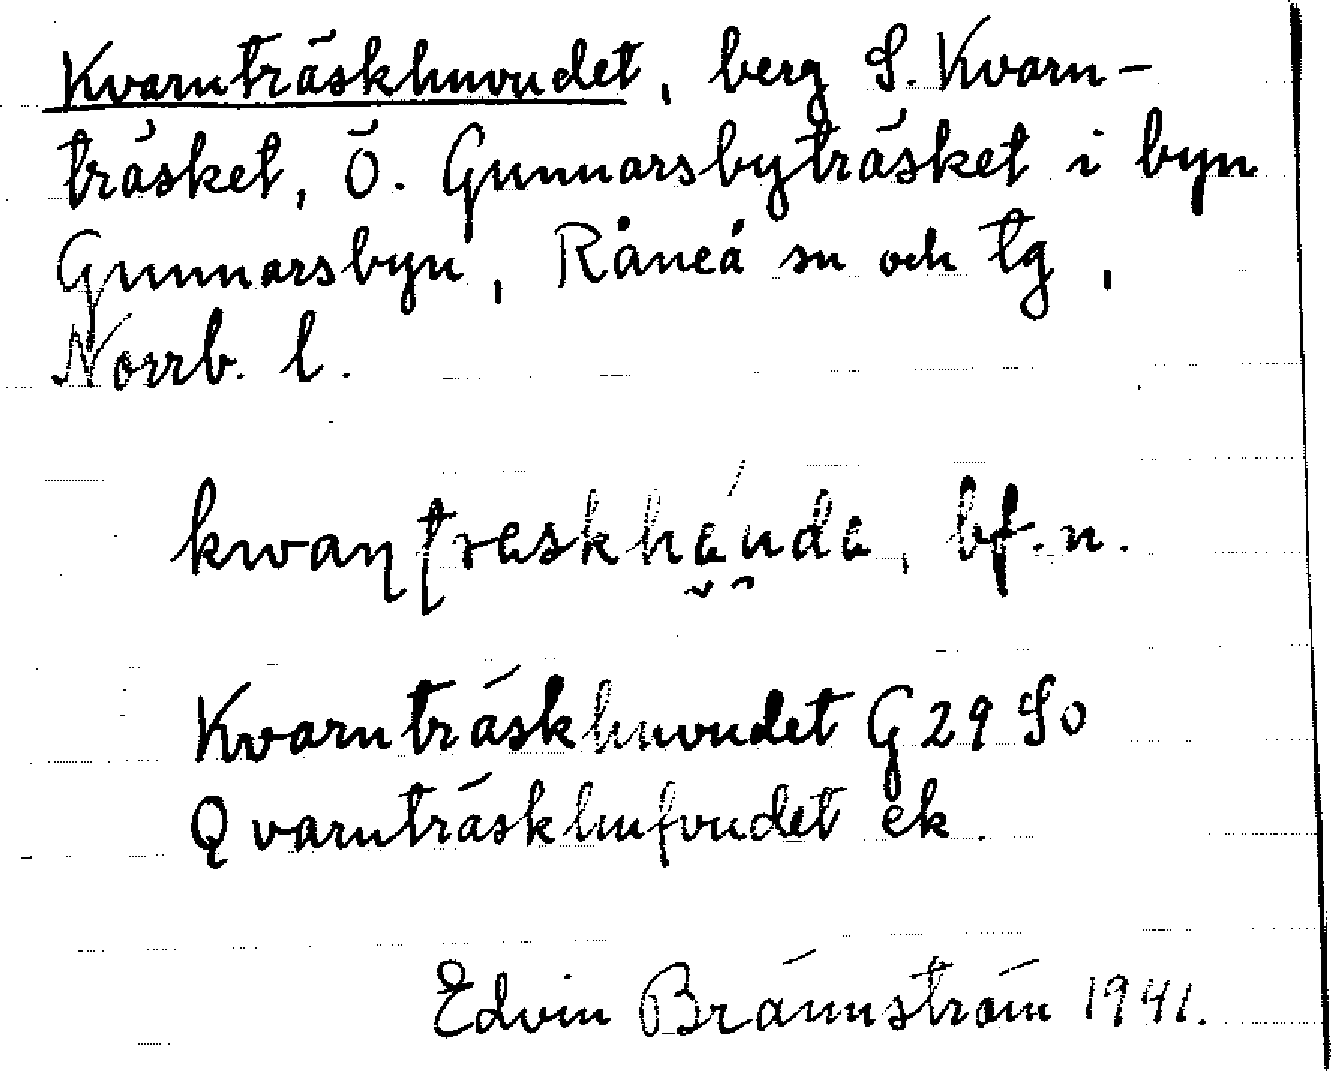 Kvarnträskhuvudet, berg S. Kvarn-
träsket, Ö. Gunnarsbyträsket i byn
Gunnarsbyn, Råneå sn och tg,
Norrb. l.
kwaɳʈraskhá̬u̯da, bf. n.
Kvarnträskhuvudet G 29 So
Qvarnträskhufvudet ek.
Edvin Brännström 1941.